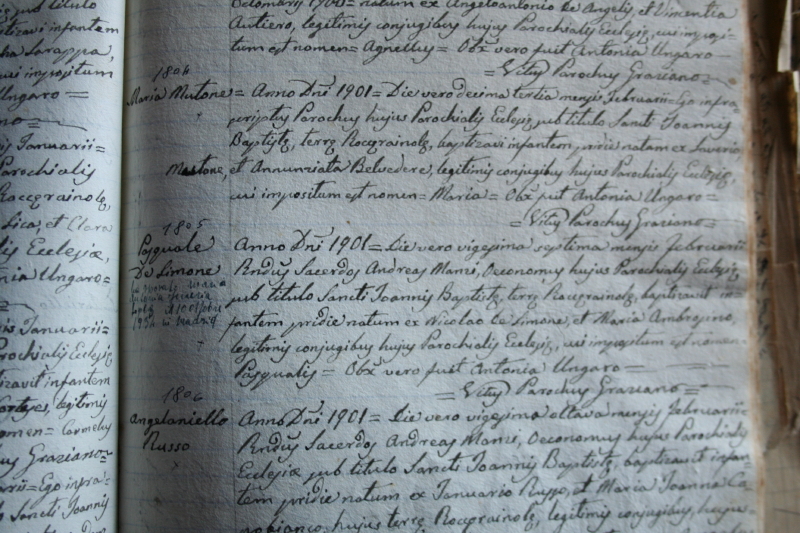 is, sub titulo
tizavi infantem
Sarappa,
cui impositum
Ungaro =
no =
Januarii =
Parochialis
Roccerainolę,
Sica, et Clara
lis Ecclesiæ,
nia Ungaro =
Januarii =
Parochialis Ecclesię
tizavit infantem
Cortese, legitimis
nomen = Carmelus
Graziano =
arii = Ego infra =
lo Sancti Joannis
natum ex Angeloantonio de Angelis, et Vincentia
Autiero, legitimis conjugibus hujus Parochialis Ecclesię, cui imposi =
tum est nomen = Agnellus = Obx vero fuit Antonia Ungaro =
= Vitus Parochus Graziano =
1804
Maria Mutone = Anno Dñi 1901 = Die vero decima tertia mensis Februarii = Ego infra =
scriptus Parochus hujus Parochialis Ecclesię, sub titulo Sancti Joannis
Baptistę, terrę Roccerainolę, baptizavi infantem, pridie natam ex Saverio
Mutone, et Annunziata Belvedere, legitimis conjugibus hujus Parochialis Ecclesię,
cui impositum est nomen = Maria = Obx fuit Antonia Ungaro =
= Vitus Parochus Graziano =
1805
Pasquale
De Simone
Anno Dñi 1901 = Die vero vigesima septima mensis Februarii =
Rndus Sacerdos Andreas Manzi, Oeconomus hujus Parochialis Ecclesię,
sub titulo Sancti Joannis Baptistę, terrę Roccerainolę, baptizavit in =
fantem pridie natum ex Nicolao de Simone, et Maria Ambrosino,
legitimis conjugibus hujus Parochialis Ecclesię, cui impositum est nomen =
Pasqualis = Obx vero fuit Antonia Ungaro =
= Vitus Parochus Graziano =
1806
Angelaniello
Russo
Anno Dñi 1901 = Die vero vigesima octava mensis Februarii =
Rndus Sacerdos Andreas Manzi, Oeconomus hujus Parochialis
Ecclesiæ sub titulo Sancti Joannis Baptistę, baptizavit infan =
tem pridie natum ex Januario Russo, et Maria Joanna Ca =
hujus terrę Roccerainolę, legitimis conjugibus, hujus